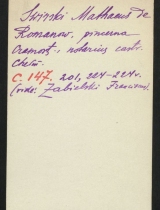 Swirski Mathaeus de
Romanow, pincerna
Oramost., notarius castr.
Chelm.
C. 147. 201, 224-224v.
(vide: Zabielski Franciscus)